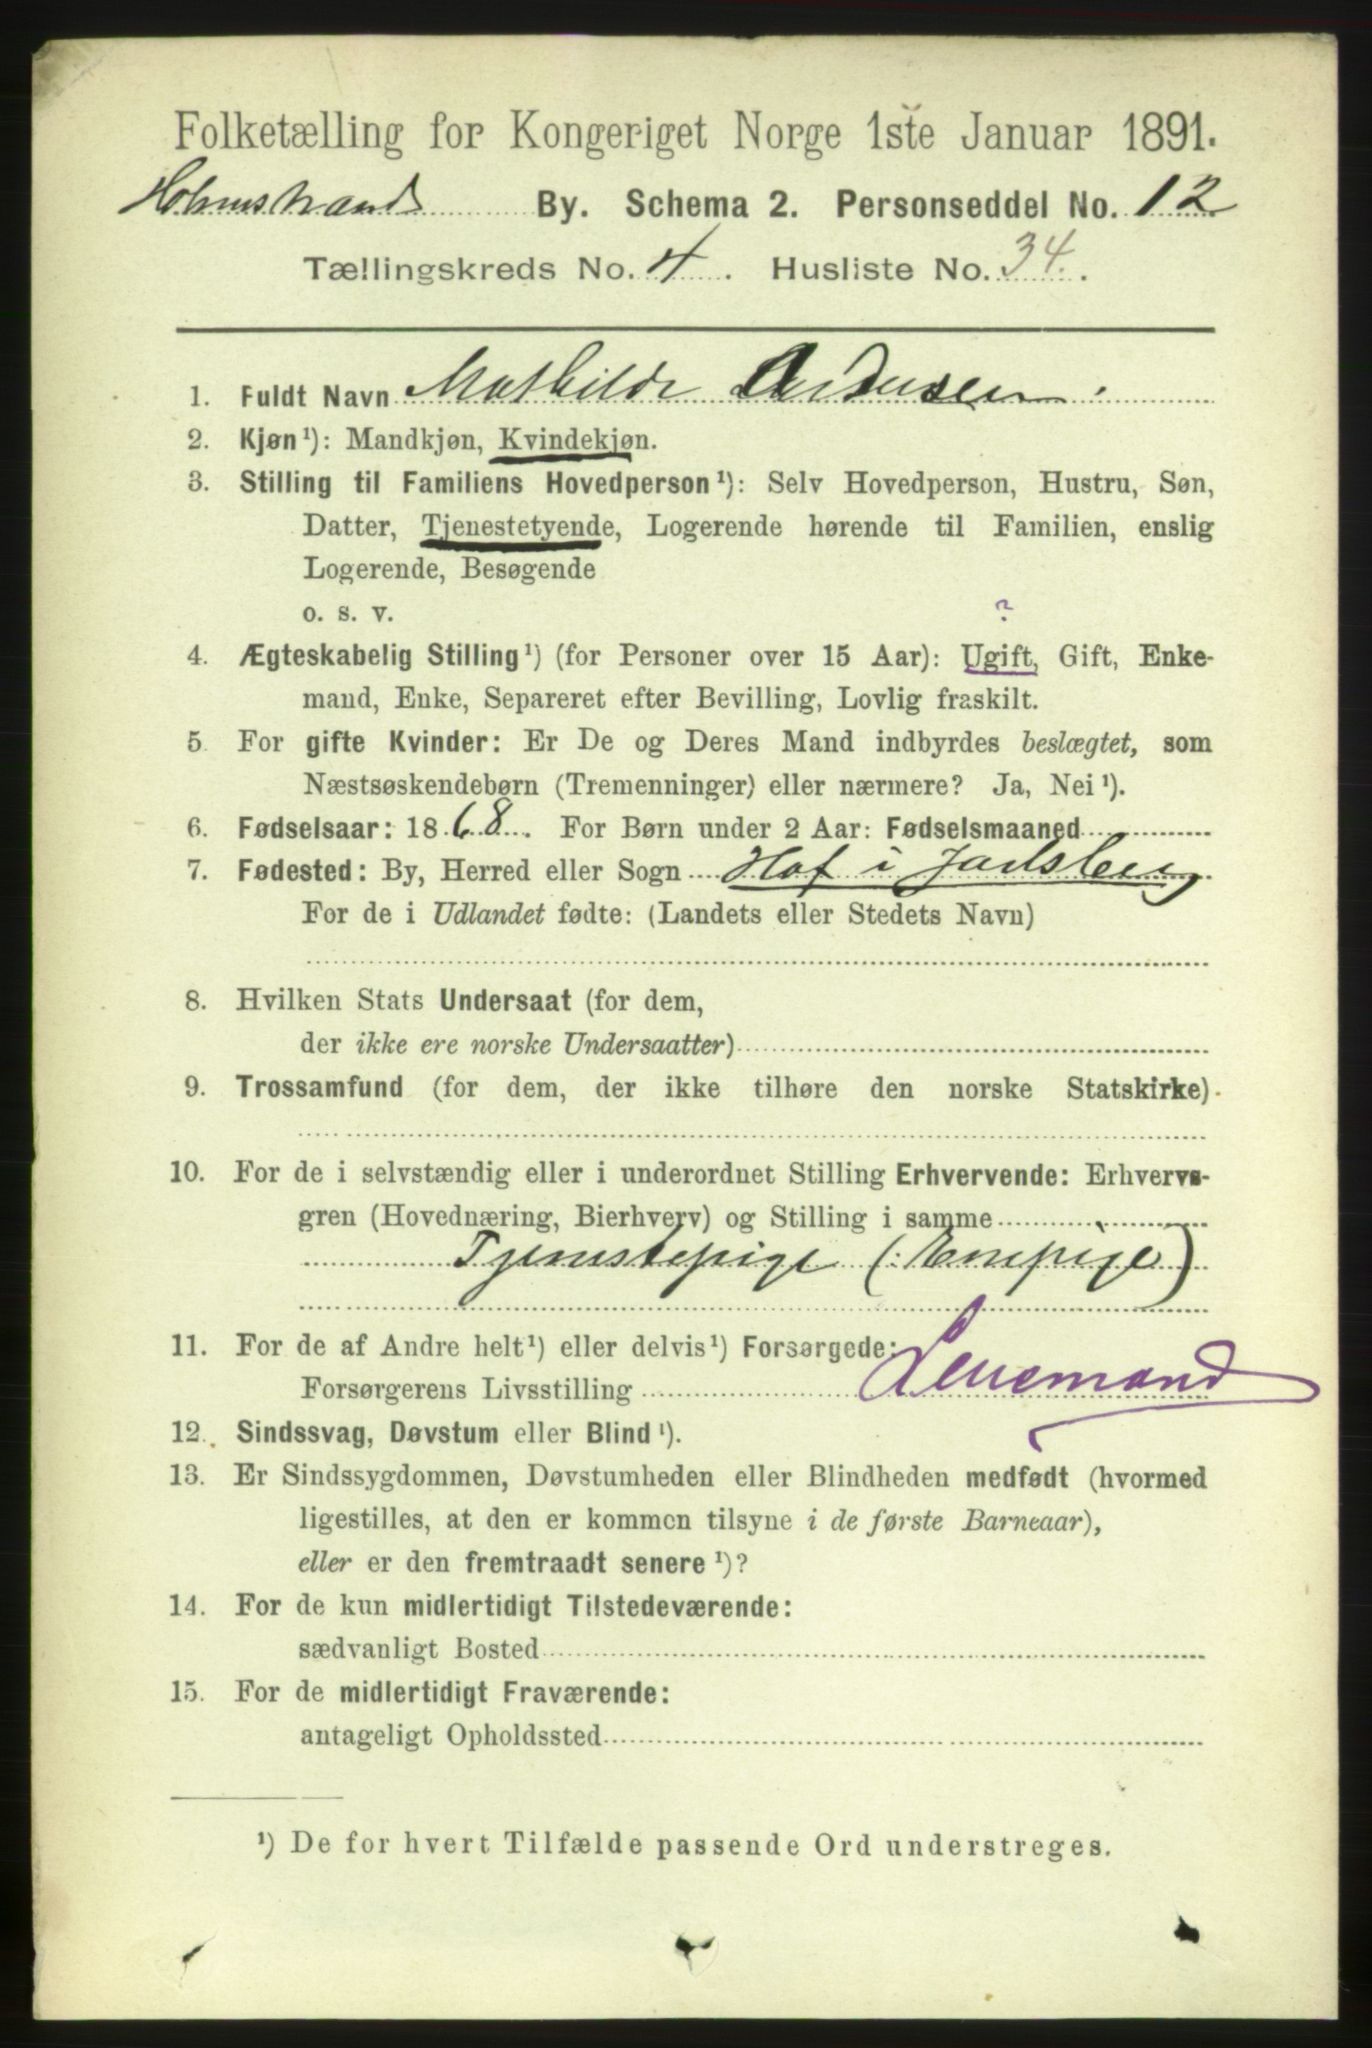 Folketælling for Kongeriget Norge 1ste Januar 1891.
Holmestrand By. Schema 2. Personseddel No. 12
Tællingskreds No. 4. Husliste No. 34.
1. Fuldt Navn Mathilde Andersen.
2. Kjøn¹): Mandkjøn, Kvindekjøn.
3. Stilling til Familiens Hovedperson¹): Selv Hovedperson, Hustru, Søn,
Datter, Tjenestetyende, Logerende hørende til Familien, enslig
Logerende, Besøgende
o. s. v.
?
4. Ægteskabelig Stilling¹) (for Personer over 15 Aar): Ugift, Gift, Enke-
mand, Enke, Separeret efter Bevilling, Lovlig fraskilt.
5. For gifte Kvinder: Er De og Deres Mand indbyrdes beslægtet, som
Næstsøskendebørn (Tremenninger) eller nærmere? Ja, Nei¹).
6. Fødselsaar: 1868. For Børn under 2 Aar: Fødselsmaaned
7. Fødested: By, Herred eller Sogn Hof i Jarlsberg
For de i Udlandet fødte: (Landets eller Stedets Navn)
8. Hvilken Stats Undersaat (for dem,
der ikke ere norske Undersaatter)
9. Trossamfund (for dem, der ikke tilhøre den norske Statskirke)
10. For de i selvstændig eller i underordnet Stilling Erhvervende: Erhvervs-
gren (Hovednæring, Bierhverv) og Stilling i samme
Tjenstepige (: Enepige)
11. For de af Andre helt¹) eller delvis¹) Forsørgede:
Forsørgerens Livsstilling Lensmand
12. Sindssvag, Døvstum eller Blind¹).
13. Er Sindssygdommen, Døvstumheden eller Blindheden medfødt (hvormed
ligestilles, at den er kommen tilsyne i de første Barneaar),
eller er den fremtraadt senere¹)?
14. For de kun midlertidigt Tilstedeværende:
sædvanligt Bosted
15. For de midlertidigt Fraværende:
antageligt Opholdssted
¹) De for hvert Tilfælde passende Ord understreges.